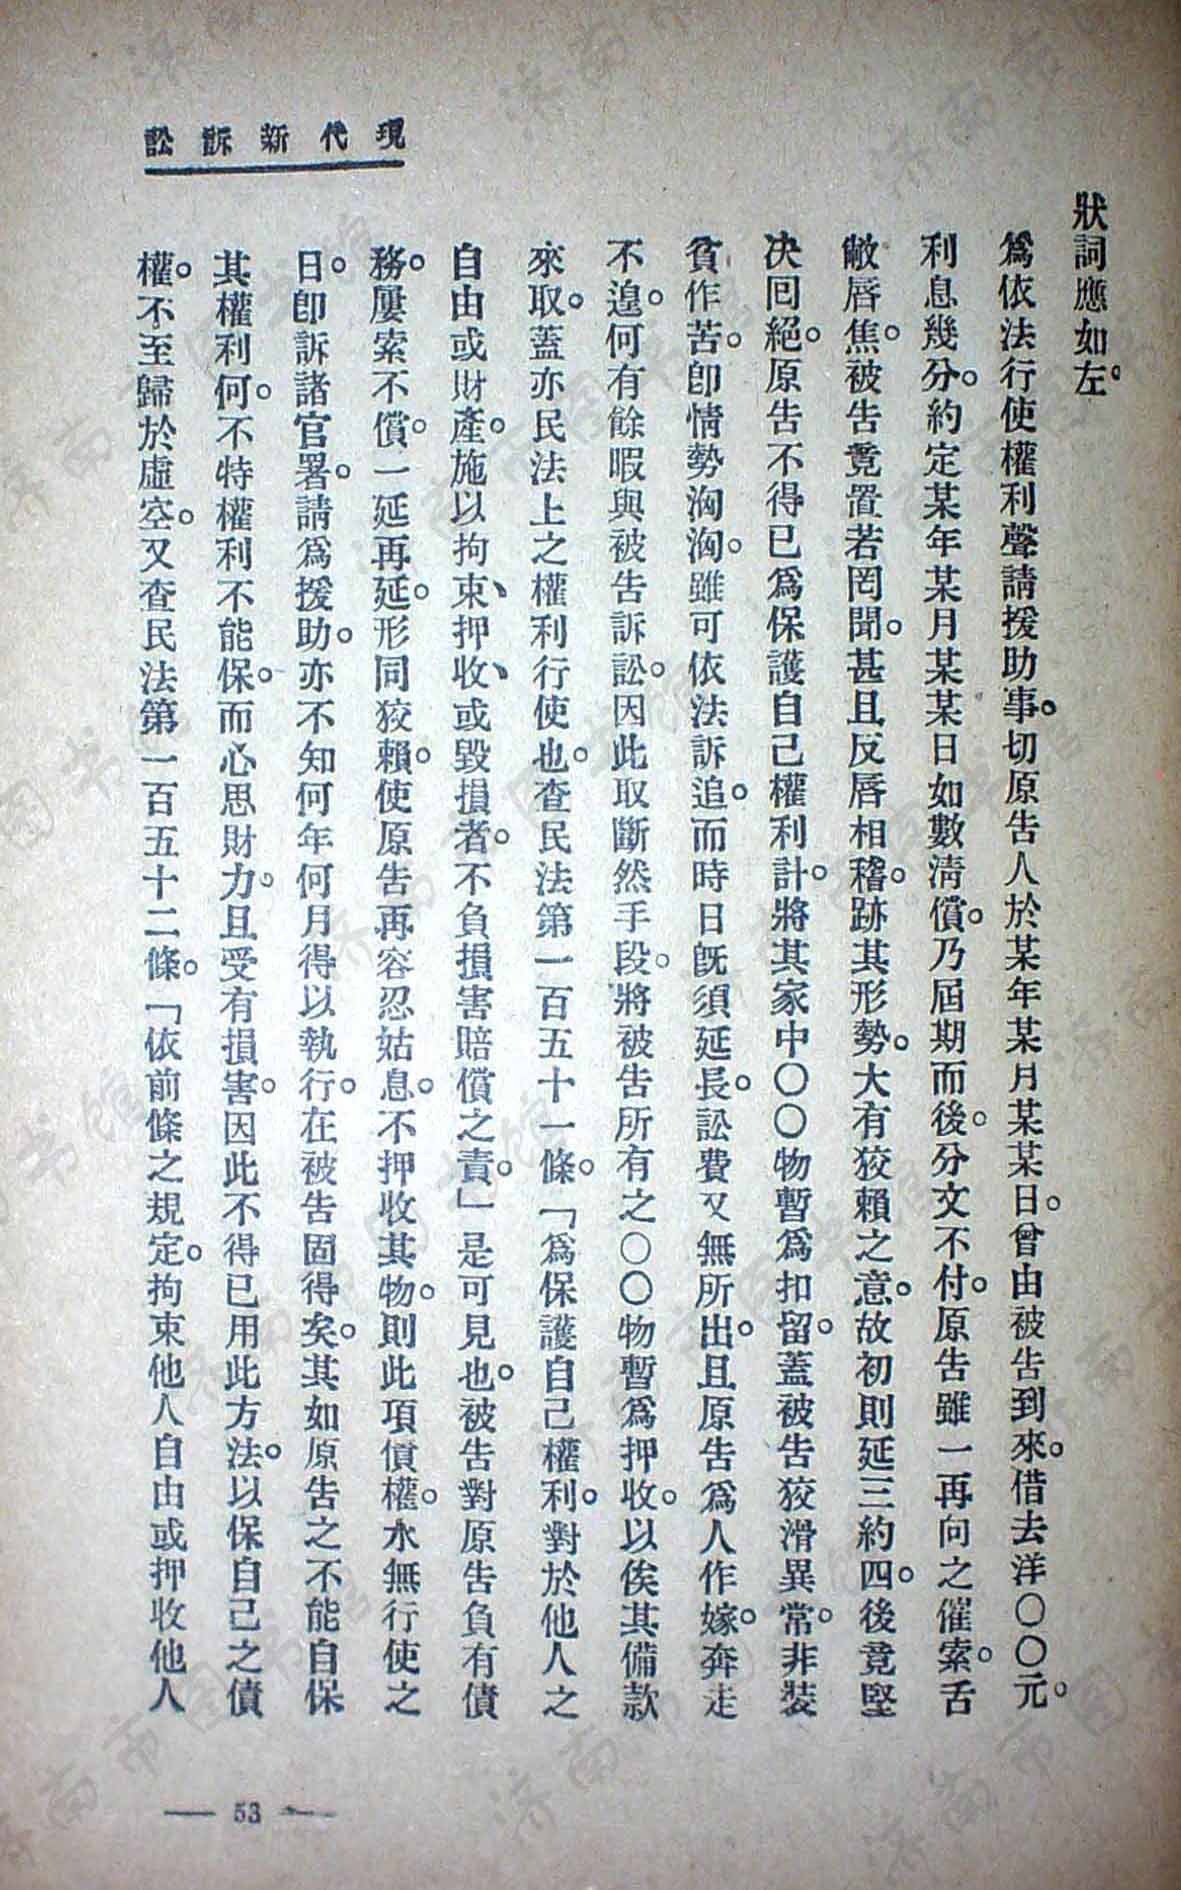 現代新訴訟
狀詞應如左。
爲依法行使權利聲請援助事。切原告人於某年某月某某日。曾由被告到來。借去洋〇〇元。
利息幾分。約定某年某月某某日如數淸償。乃屆期而後。分文不付。原告雖一再向之催索。舌
敝唇焦。被告竟置若罔聞。甚且反唇相稽。跡其形勢。大有狡賴之意。故初則延三約四。後竟堅
决回絕。原告不得已爲保護自己權利計。將其家中〇〇物暫爲扣留。蓋被告狡滑異常。非裝
貧作苦。卽情勢洶洶。雖可依法訴追。而時日旣須延長。訟費又無所出。且原告爲人作嫁。奔走
不遑。何有餘暇與被告訴訟。因此取斷然手段。將被告所有之〇〇物暫爲押收。以俟其備款
來取。蓋亦民法上之權利行使也。查民法第一百五十一條。「爲保護自己權利。對於他人之
自由或財產。施以拘束、押收、或毀損者。不負損害賠償之責。」是可見也。被告對原告負有債
務。屢索不償。一延再延。形同狡賴。使原告再容忍姑息。不押收其物。則此項債權。永無行使之
日。卽訴諸官署。請爲援助。亦不知何年何月得以執行。在被告固得矣。其如原告之不能自保
其權利何。不特權利不能保。而心思財力。且受有損害。因此不得已用此方法。以保自己之債
權。不至歸於虛空。又查民法第一百五十二條。「依前條之規定。拘束他人自由或押收他人
— 53 —
济南市图书馆